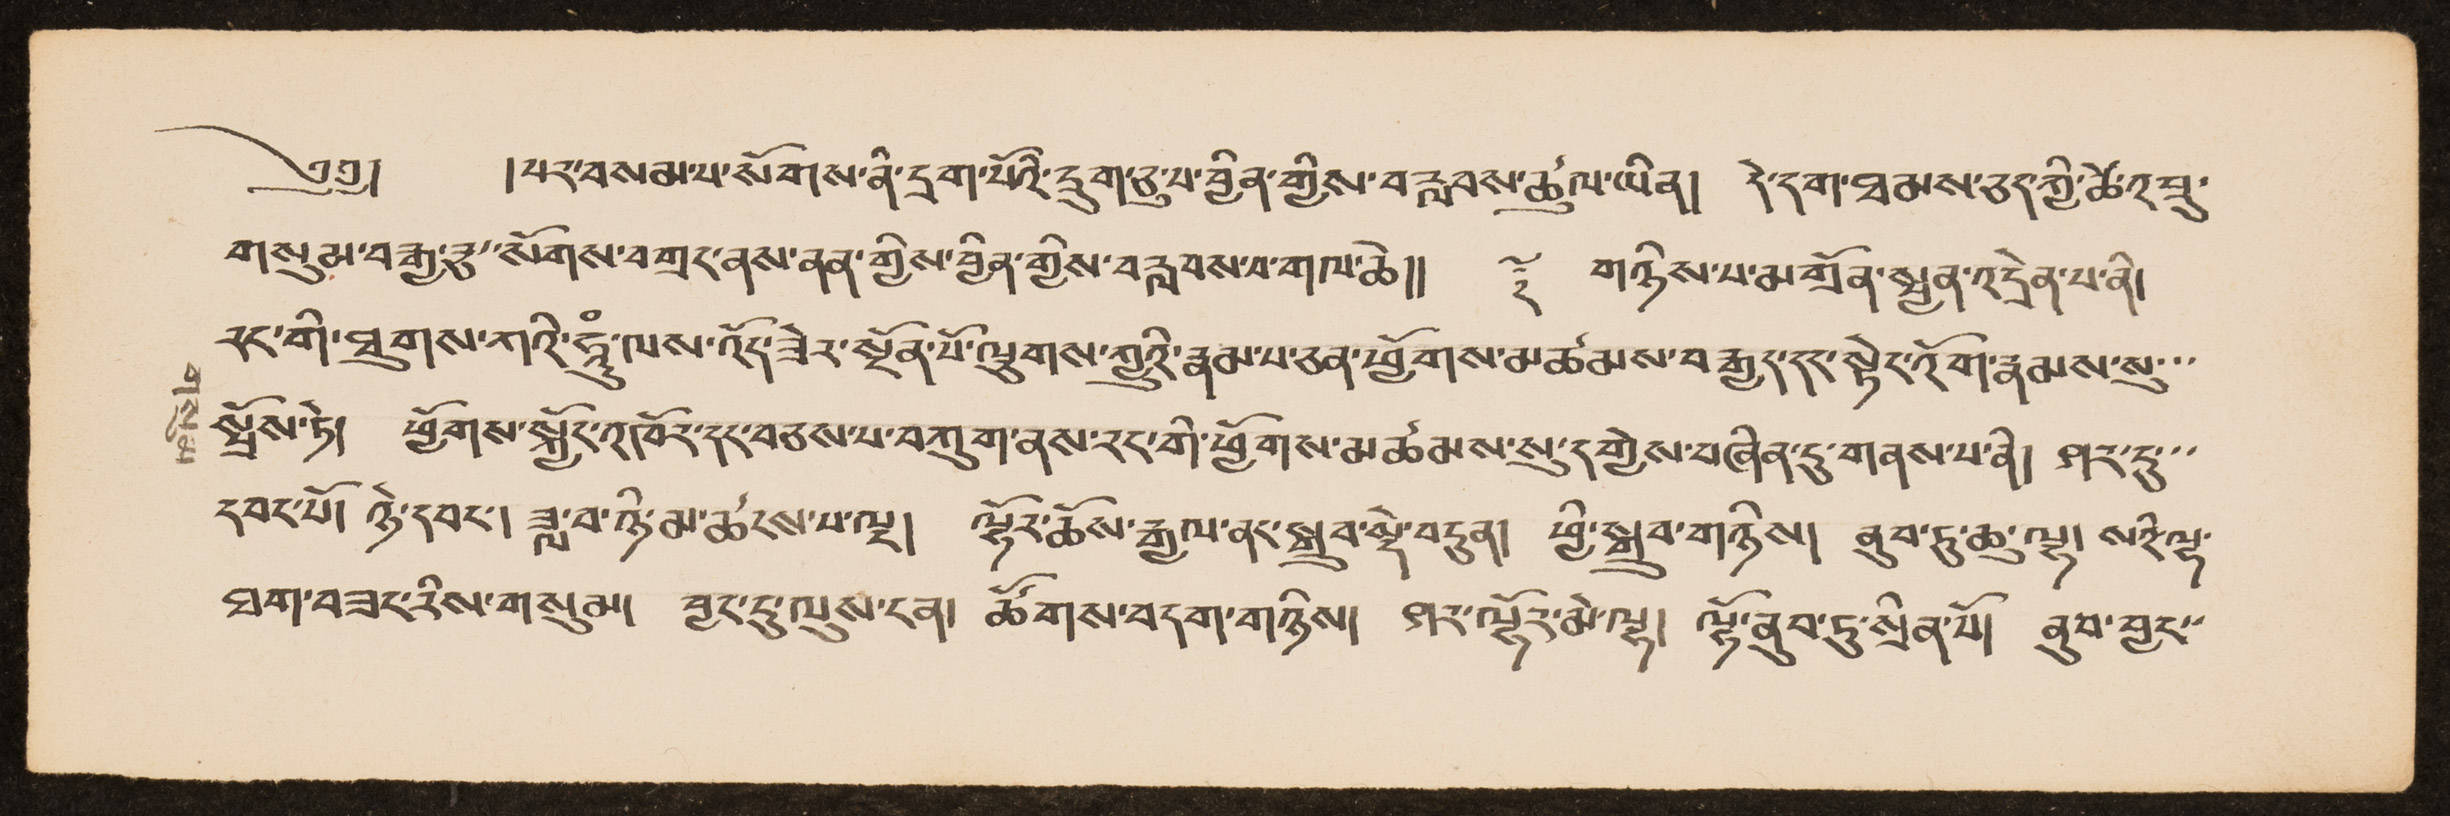 ༄༅། །པར་བསམ་པ་སོགས་ནི་དྲག་པོའི་དྲུག་ཅུ་པ་བྱིན་གྱིས་བརླབས་ཚུལ་ཡིན། དེ་དག་ཐམས་ཅད་ཀྱི་ཚེ་འབྲུ་
གསུམ་བརྒྱ་རྩ་སོགས་བགྲང་ནས་ནན་གྱིས་བྱིན་གྱིས་བརླབས་པ་གལ་ཆེ།། གཉིས་པ་མགྲོན་སྤྱན་འདྲེན་པ་ནི།
རང་གི་ཐུགས་ཀའི་ཧཱུྃ་ལས་འོད་ཟེར་སྔོན་པོ་ལྕུགས་ཀྱུའི་རྣམ་པ་ཅན་ཕྱོགས་མཚམས་བརྒྱད་དང་སྟེང་འོག་རྣམས་སུ་
སྤྲོས་ཏེ། ཕྱོགས་སྐྱོང་འཁོར་དང་བཅས་པ་བཀུག་ནས་རང་གི་ཕྱོགས་མཚམས་སུ་དགྱེས་བཞིན་དུ་གནས་པ་ནི། ཤར་དུ་
དབང་པོ། ཉེ་དབང་། ཟླ་བ་ཉི་མ་ཚངས་པ་ལྔ། ལྷོར་ཆོས་རྒྱལ་ནང་སྒྲུབ་སྡེ་བདུན། ཕྱི་སྒྲུབ་གཉིས། ནུབ་ཏུ་ཆུ་ལྷ། སའི་ལྷ་
ཐག་བཟང་རིས་གསུམ། བྱང་དུ་ལུས་ངན། ཚོགས་བདག་གཉིས། ཤར་ལྷོར་མེ་ལྷ། ལྷོ་ནུབ་ཏུ་སྲིན་པོ། ནུབ་བྱང་